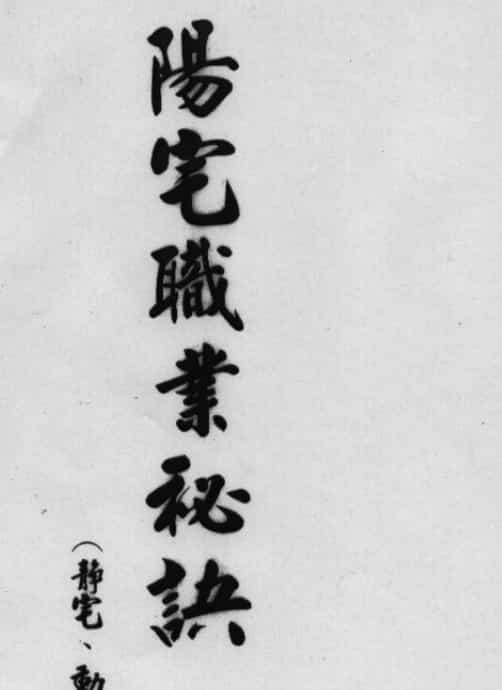 陽宅職業秘訣
（靜宅、動